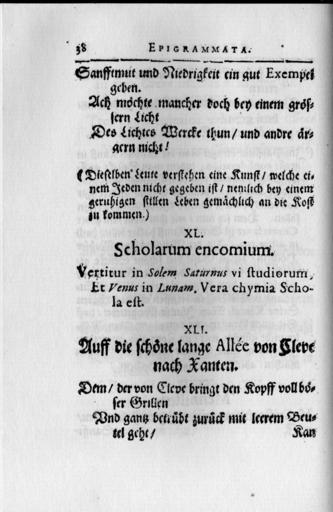 38 EPIGRAMMATA.
Sanfftmut und Niedrigkeit ein gut Exempel
geben.
Ach möchte mancher doch bey einem grös-
sern Licht
Des Lichtes Wercke thun/ und andre är-
gern nicht!
(Dieselben Leute verstehen eine Kunst/ welche ei-
nem Jeden nicht gegeben ist/ nemlich bey einem
geruhigen stillen Leben gemächlich an die Kost
zu kommen.)
XL.
Scholarum encomium.
Vertitur in Solem Saturnus vi studiorum,
Et Venus in Lunam, Vera chymia Scho-
la est.
XLI.
Auff die schöne lange Allée von Cleve
nach Xanten.
Dem/ der von Cleve bringt den Kopff voll bö-
ser Grillen
Vnd gantz betrübt zurück mit leerem Beu-
tel geht/
Kan